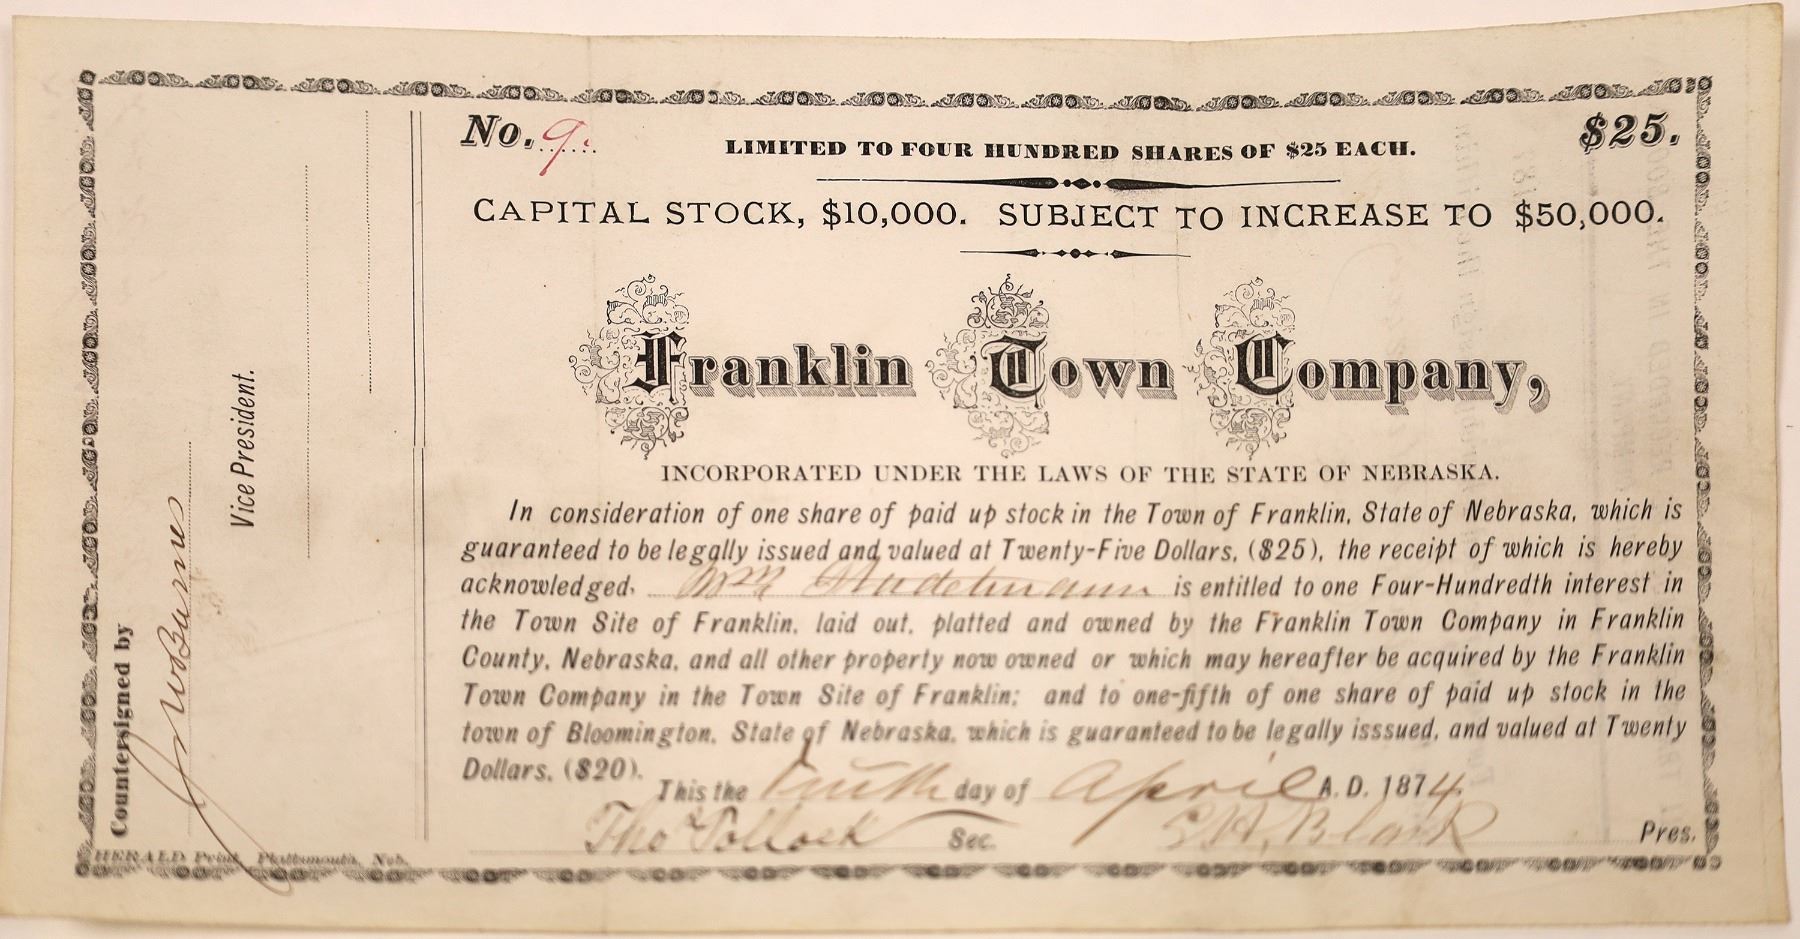 No. 9.
LIMITED TO FOUR HUNDRED SHARES OF $25 EACH.
$25.
CAPITAL STOCK, $10,000. SUBJECT TO INCREASE TO $50,000.
Franklin Town Company,
INCORPORATED UNDER THE LAWS OF THE STATE OF NEBRASKA.
In consideration of one share of paid up stock in the Town of Franklin, State of Nebraska, which is
guaranteed to be legally issued and valued at Twenty-Five Dollars, ($25), the receipt of which is hereby
acknowledged, Wm is entitled to one Four-Hundredth interest in
the Town Site of Franklin, laid out, platted and owned by the Franklin Town Company in Franklin
County, Nebraska, and all other property now owned or which may hereafter be acquired by the Franklin
Town Company in the Town Site of Franklin; and to one-fifth of one share of paid up stock in the
town of Bloomington, State of Nebraska, which is guaranteed to be legally isssued, and valued at Twenty
Dollars, ($20).
This the Tenth day of April A.D. 1874.
Thos Pollock Sec. Pres.
Countersigned by
Vice President.
HERALD Print, Plattsmouth, Neb.